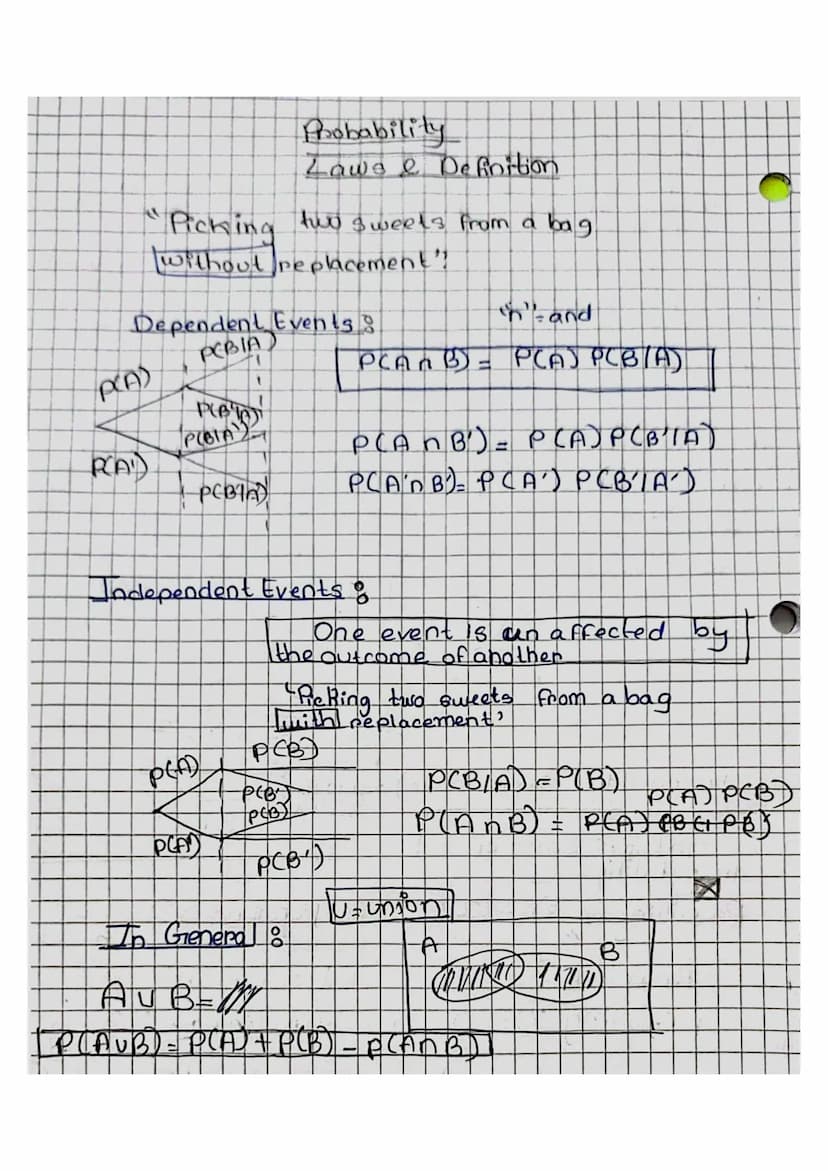 Probability
Laws & Definition
"Picking two sweets from a bag
without replacement"!
Dependent Events :
"n" = and
P(B|A)
P(A)
P(A n B) = P(A) P(B|A)
P(B'|A)
P(B|A')
P(A n B') = P(A) P(B'|A)
P(A')
P(A' n B') = P(A') P(B'|A')
P(B'|A)
Independent Events :
One event is unaffected by
the outcome of another
"Picking two sweets from a bag
with replacement"
P(B)
P(A)
P(B|A) = P(B)
P(B')
P(A) P(B)
P(B)
P(A n B) = P(A)
P(A')
P(B')
U = union
In General :
A
B
A U B =
P(AUB) = P(A) + P(B) - P(A n B)